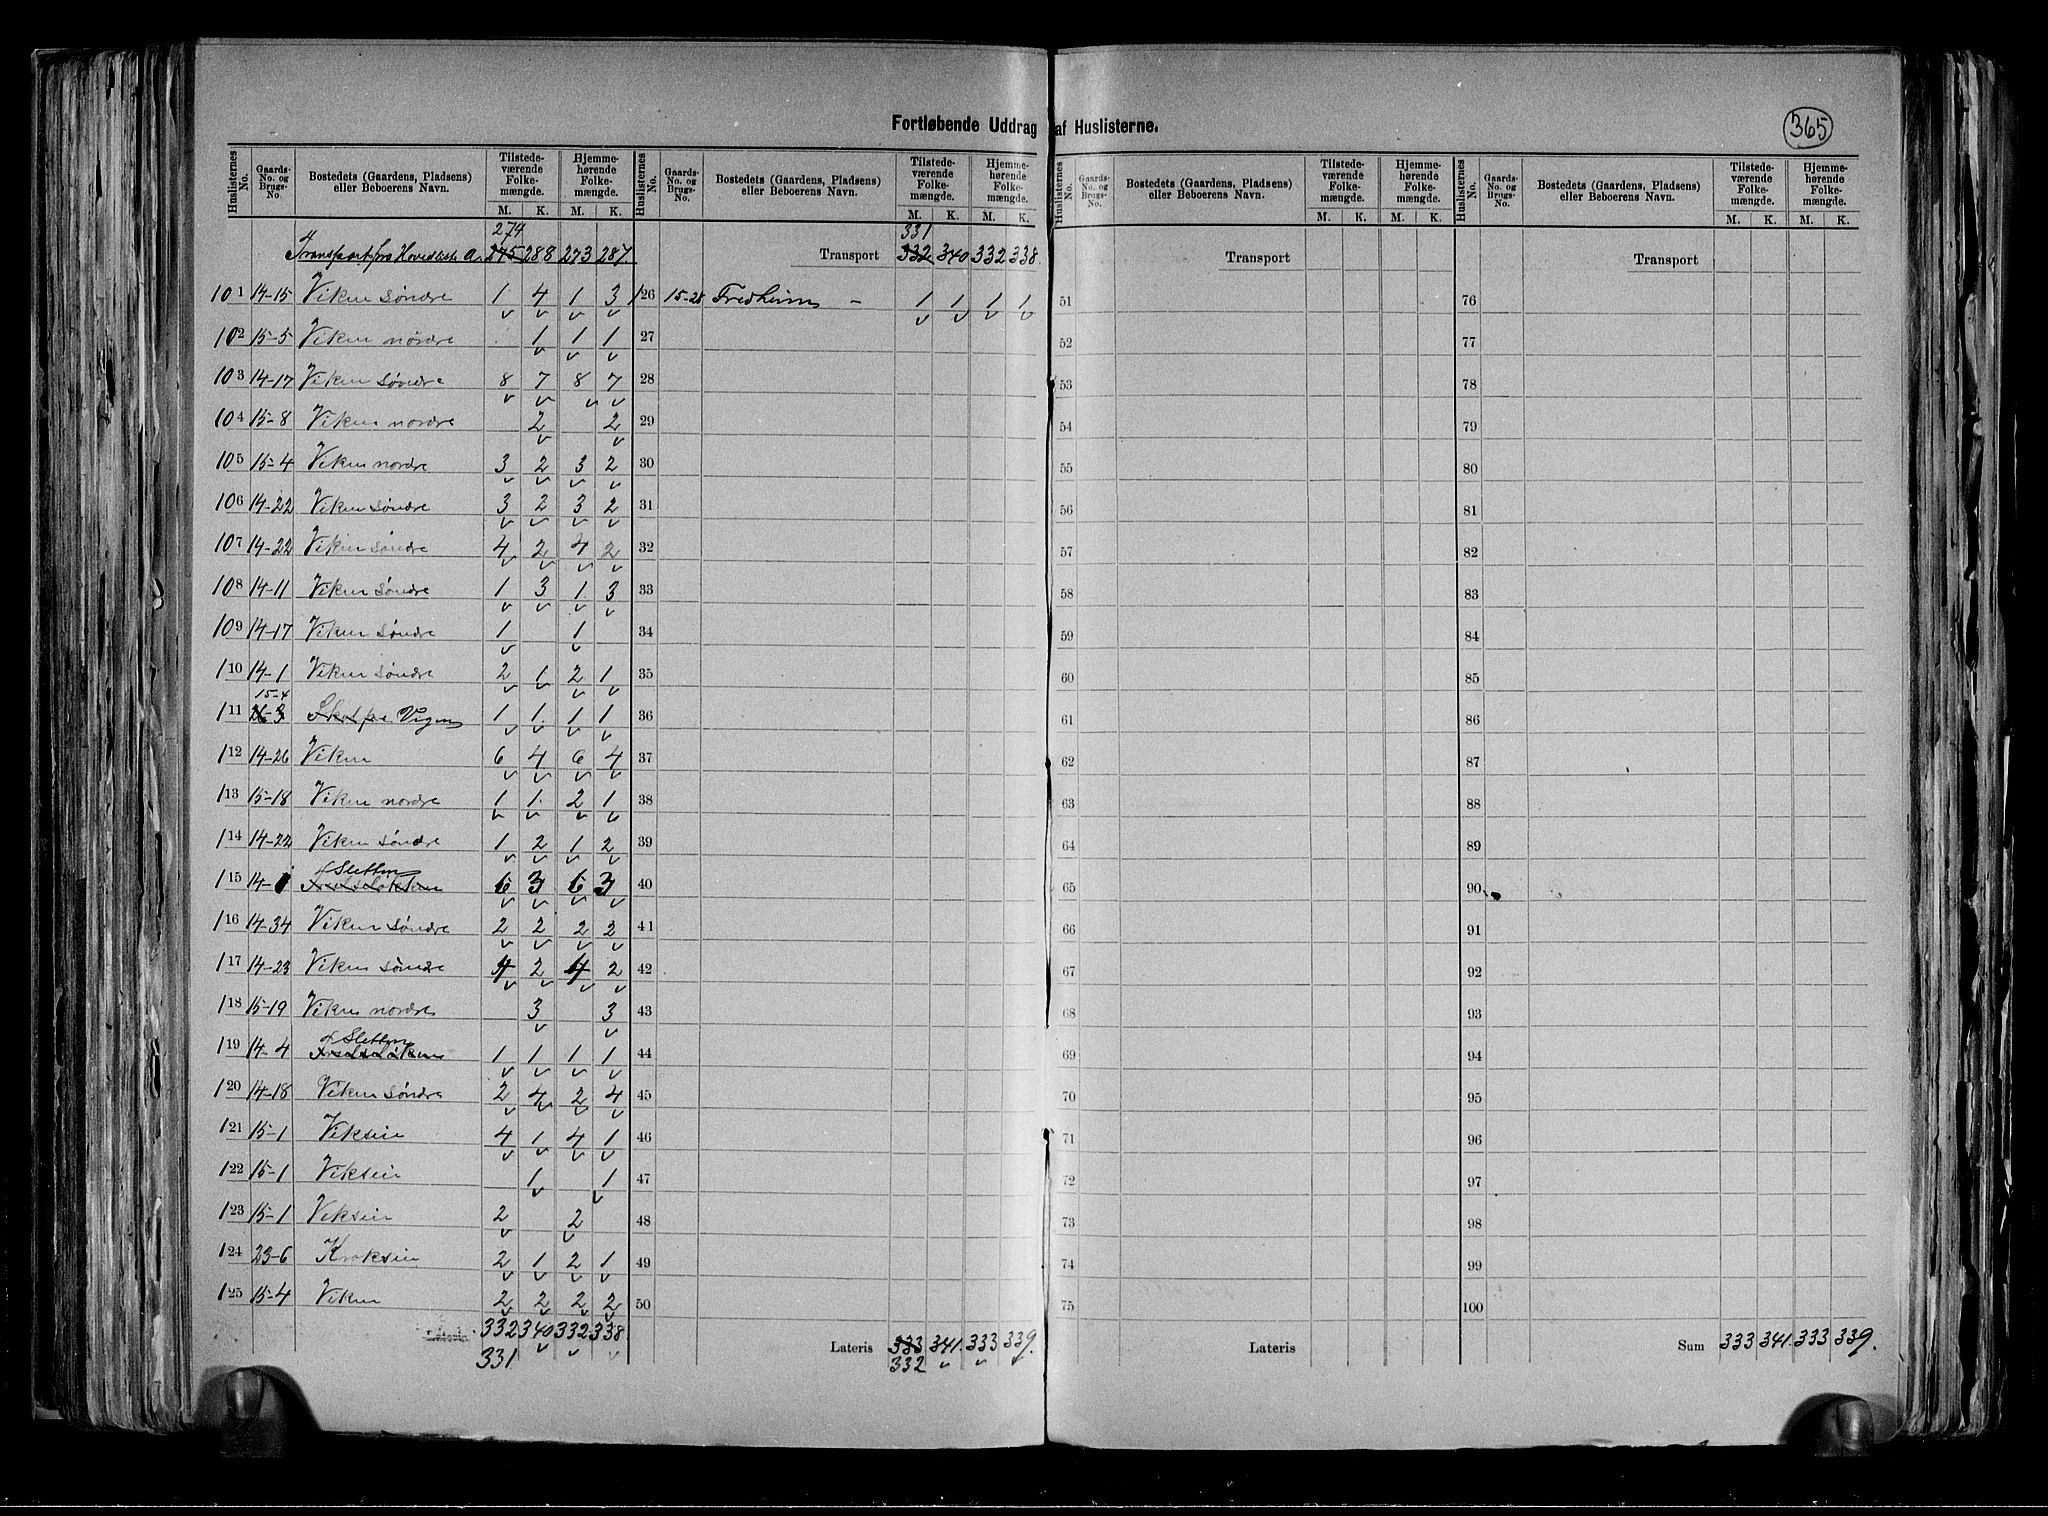 Fortløbende Uddrag af Huslisterne.
365
Huslisternes No. Gaards-No. og Brugs-No. Bostedets (Gaardens, Pladsens) eller Beboerens Navn. Tilstedeværende Folkemængde. M. K. Hjemmehørende Folkemængde. M. K.
Huslisternes No. Gaards-No. og Brugs-No. Bostedets (Gaardens, Pladsens) eller Beboerens Navn. Tilstedeværende Folkemængde. M. K. Hjemmehørende Folkemængde. M. K.
Huslisternes No. Gaards-No. og Brugs-No. Bostedets (Gaardens, Pladsens) eller Beboerens Navn. Tilstedeværende Folkemængde. M. K. Hjemmehørende Folkemængde. M. K.
Huslisternes No. Gaards-No. og Brugs-No. Bostedets (Gaardens, Pladsens) eller Beboerens Navn. Tilstedeværende Folkemængde. M. K. Hjemmehørende Folkemængde. M. K.
274
Transport fra Hovedliste A. 275 288 273 287.
101 14-15 Viken søndre 1 4 1 3
102 15-5 Viken nordre 1 1 1
103 14-17 Viken søndre 8 7 8 7
104 15-8 Viken nordre 2 2
105 15-4 Viken nordre 3 2 3 2
106 14-22 Viken søndre 3 2 3 2
107 14-22 Viken søndre 4 2 4 2
108 14-11 Viken søndre 1 3 1 3
109 14-17 Viken søndre 1 1
110 14-1 Viken søndre 2 1 2 1
15-4
111 Vigen 1 1 1 1
112 14-26 Viken 6 4 6 4
113 15-18 Viken nordre 1 1 2 1
114 14-22 Viken søndre 1 2 1 2
Sletten
115 14-1 6 3 6 3
116 14-34 Viken søndre 2 2 2 2
117 14-23 Viken søndre 4 2 4 2
118 15-19 Viken nordre 3 3
Sletten
119 14-4 1 1 1 1
120 14-18 Viken søndre 2 4 2 4
121 15-1 Viksein 4 1 4 1
122 15-1 Viksein 1 1
123 15-1 Viksein 2 2
124 23-6 Kroksein 2 1 2 1
125 15-4 Viken 2 2 2 2
Lateris 332 340 332 338.
331
331
Transport 332 340 332 338.
126 15-28 Fredheim - 1 1 1 1
27
28
29
30
31
32
33
34
35
36
37
38
39
40
41
42
43
44
45
46
47
48
49
50
Lateris 333 341. 333 339.
332
Transport
51
52
53
54
55
56
57
58
59
60
61
62
63
64
65
66
67
68
69
70
71
72
73
74
75
Lateris
Transport
76
77
78
79
80
81
82
83
84
85
86
87
88
89
90
91
92
93
94
95
96
97
98
99
100
Sum 333 341. 333 339.